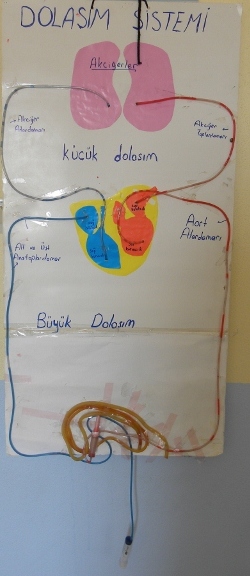 DOLAŞIM SİSTEMİ
Akciğerler
Akciğer
Atardamarı
Akciğer
Toplardamarı
küçük dolaşım
Aort
Atardamarı
Alt ve Üst
Anatoplardamar
Büyük Dolaşım